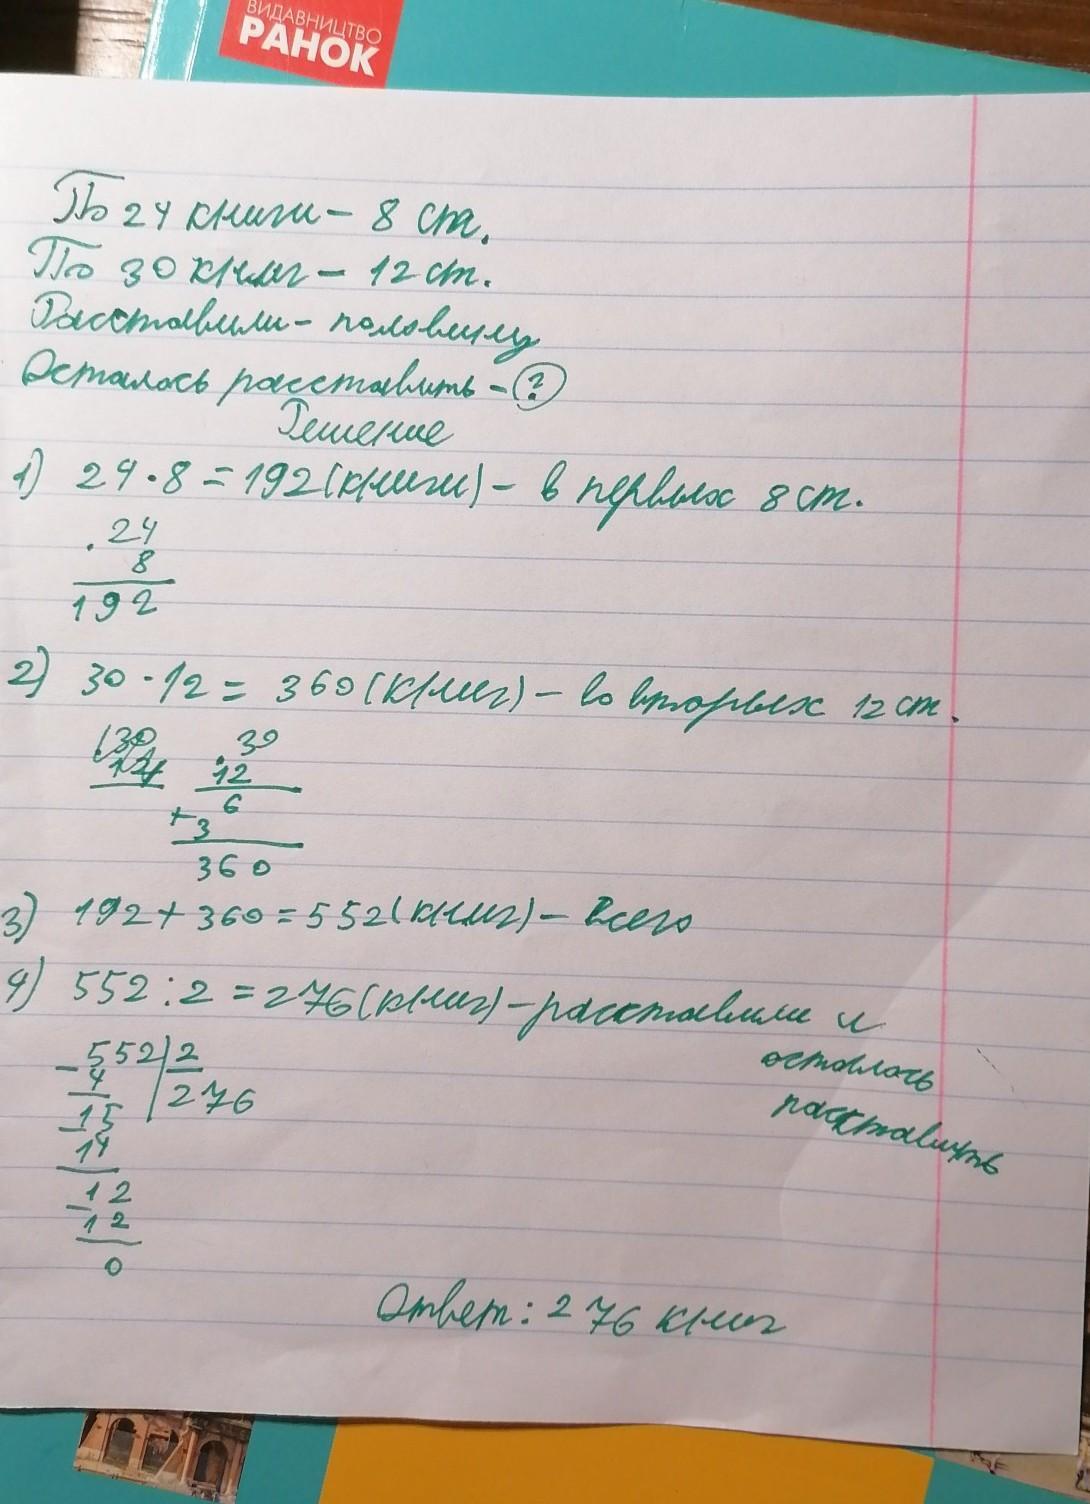 ВИДАВНИЦТВО
РАНОК
По 24 книги - 8 ст.
По 30 книг - 12 ст.
Расставили - половину
Осталось расставить - ?
Решение
1) 24 · 8 = 192 (книги) - в первых 8 ст.
. 24
8
192
2) 30 · 12 = 360 (книг) - во вторых 12 ст.
30
12
. 30
12
6
+ 3
360
3) 192 + 360 = 552 (книг) - всего
4) 552 : 2 = 276 (книг) - расставили и
осталось
расставить
- 552 | 2
4 | 276
- 15
14
- 12
12
0
Ответ: 276 книг